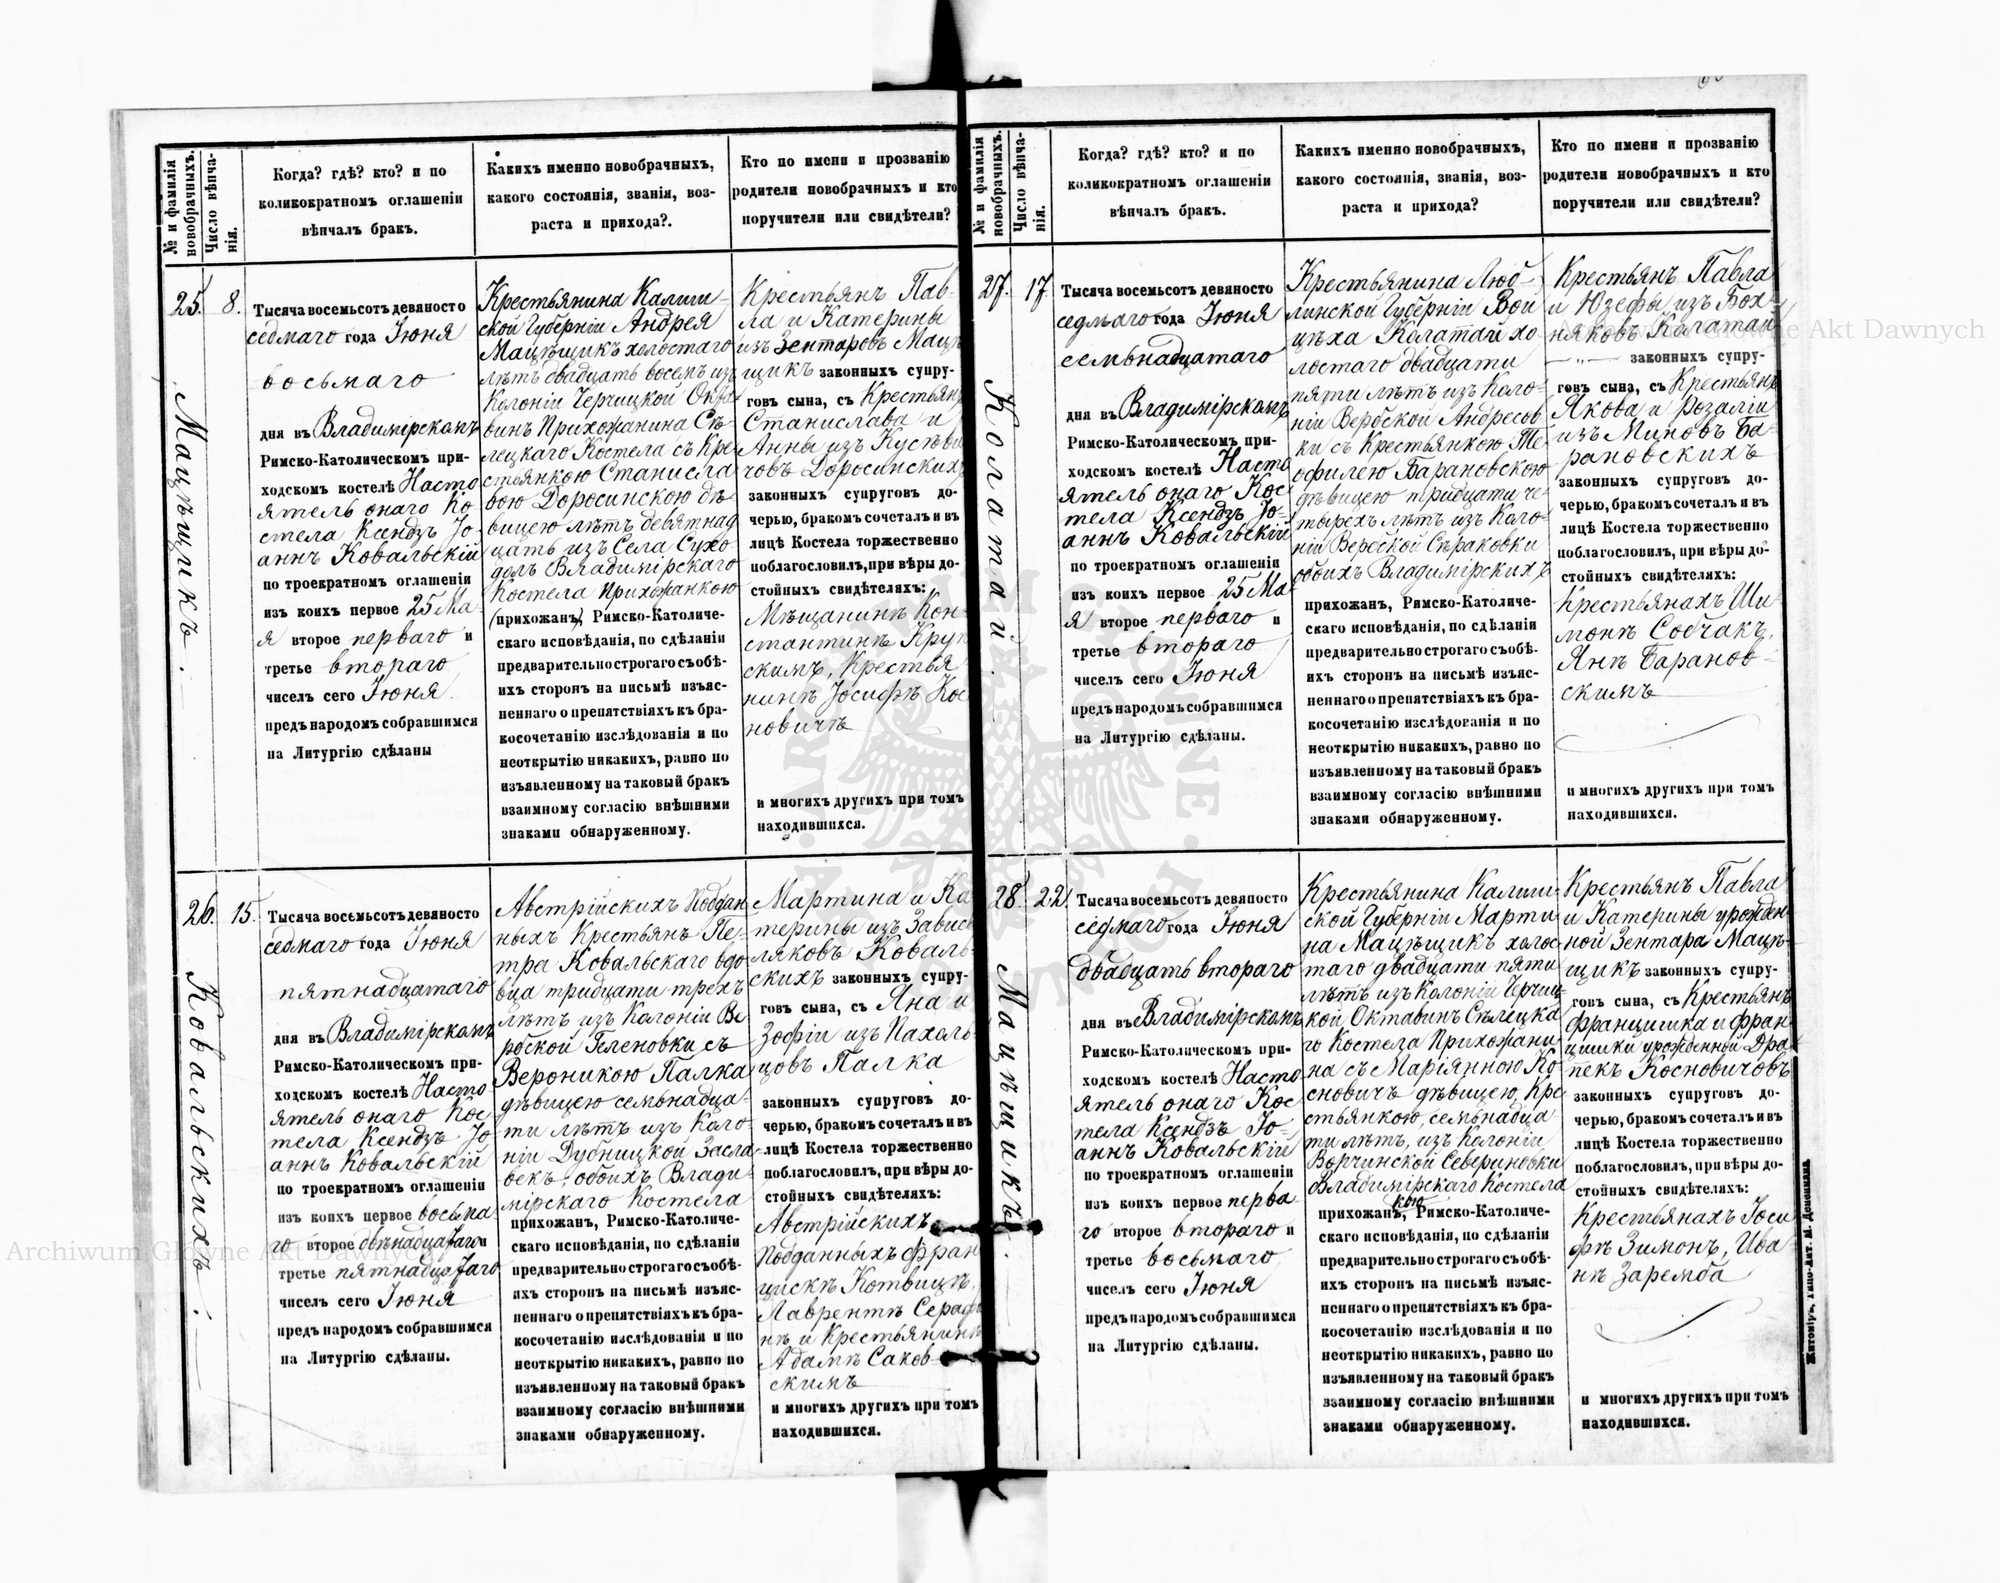 № и фамилія новобрачныхъ.
Число вѣнчанія.
Когда? гдѣ? кто? и по
коликократномъ оглашеніи
вѣнчалъ бракъ.
Какихъ именно новобрачныхъ,
какого состоянія, званія, воз-
раста и прихода?.
Кто по имени и прозванію
родители новобрачныхъ и кто
поручители или свидѣтели?
25.
8.
Мацѣщикъ.
Тысяча восемьсотъ девяносто
седмаго года Іюня
восьмаго
дня въ Владимірскомъ
Римско-Католическомъ при-
ходскомъ костелѣ Насто
ятель онаго Ко
стела Ксендзъ Іо
аннъ Ковальскій
по троекратномъ оглашеніи
изъ коихъ первое 25 Ма-
я второе перваго и
третье втораго
чиселъ сего Іюня
предъ народомъ собравшимся
на Литургію сдѣланы
Крестьянина Калиш-
ской Губерніи Андрея
Мацѣщикъ холостаго
лѣтъ двадцать восемь изъ
Колоніи Черчицкой Окта
винъ Прихожанина Сѣ
лецкаго Костела съ Кре
стьянкою Станисла
вою Доросинскою дѣ
вицею лѣтъ девятнад
цать изъ Села Сухо
долъ Владимірскаго
Костела Прихожанкою
(прихожанъ) Римско-Католиче-
скаго исповѣданія, по сдѣланіи
предварительно строгаго съ обѣ-
ихъ сторонъ на письмѣ изъяс-
неннаго о препятствіяхъ къ бра-
косочетанію изслѣдованія и по
неоткрытію никакихъ, равно по
изъявленному на таковый бракъ
взаимному согласію внѣшними
знаками обнаруженному.
Крестьянъ Пав-
ла и Катерины
изъ Зентаровъ Мацѣ
щикъ законныхъ супру-
говъ сына, съ Крестьянъ
Станислава и
Анны изъ Кусѣви
човъ Доросинскихъ
законныхъ супруговъ до-
черью, бракомъ сочеталъ и въ
лицѣ Костела торжественно
поблагословилъ, при вѣры до-
стойныхъ свидѣтеляхъ:
Мѣщанинъ Кон
стантинъ Круп
скимъ, Крестья
нинъ Іосифъ Кос
новичъ
и многихъ другихъ при томъ
находившихся.
26.
15.
Ковальскихъ.
Тысяча восемьсотъ девяносто
седмаго года Іюня
пятнадцатаго
дня въ Владимірскомъ
Римско-Католическомъ при-
ходскомъ костелѣ Насто
ятель онаго Кос
тела Ксендзъ Іо
аннъ Ковальскій
по троекратномъ оглашеніи
изъ коихъ первое восьма-
го второе двѣнадцатаго и
третье пятнадцатаго
чиселъ сего Іюня
предъ народомъ собравшимся
на Литургію сдѣланы.
Австрійскихъ Поддан
ныхъ Крестьянъ Пе-
тра Ковальскаго вдо-
вца тридцати трехъ
лѣтъ изъ Колоніи Ве
рбской Геленовки съ
Вероникою Палка
дѣвицею семьнадца-
ти лѣтъ изъ Коло-
ніи Дубницкой Засла
векъ; обоихъ Влади-
мірскаго Костела
прихожанъ, Римско-Католиче-
скаго исповѣданія, по сдѣланіи
предварительно строгаго съ обѣ-
ихъ сторонъ на письмѣ изъяс-
неннаго о препятствіяхъ къ бра-
косочетанію изслѣдованія и по
неоткрытію никакихъ, равно по
изъявленному на таковый бракъ
взаимному согласію внѣшними
знаками обнаруженному.
Мартина и Ка
терины изъ Зависъ
ляковъ Коваль-
скихъ законныхъ супру-
говъ сына, съ Яна и
Зофіи изъ Пахоль-
цовъ Палка
законныхъ супруговъ до-
черью, бракомъ сочеталъ и въ
лицѣ Костела торжественно
поблагословилъ, при вѣры до-
стойныхъ свидѣтеляхъ:
Австрійскихъ
Подданныхъ Фран
цискъ Котвицъ,
Лаврентъ Сераф
нъ и Крестьянинъ
Адамъ Саков-
скимъ
и многихъ другихъ при томъ
находившихся.
№ и фамилія новобрачныхъ.
Число вѣнчанія.
Когда? гдѣ? кто? и по
коликократномъ оглашеніи
вѣнчалъ бракъ.
Какихъ именно новобрачныхъ,
какого состоянія, званія, воз-
раста и прихода?
Кто по имени и прозванію
родители новобрачныхъ и кто
поручители или свидѣтели?
27.
17.
Колатай.
Тысяча восемьсотъ девяносто
седмаго года Іюня
семьнадцатаго
дня въ Владимірскомъ
Римско-Католическомъ при-
ходскомъ костелѣ Насто
ятель онаго Кос
тела Ксендзъ Іо-
аннъ Ковальскій
по троекратномъ оглашеніи
изъ коихъ первое 25 Ма-
я второе перваго и
третье втораго
чиселъ сего Іюня
предъ народомъ собравшимся
на Литургію сдѣланы.
Крестьянина Люб-
линской Губерніи Вой
цѣха Колатай хо
лостаго двадцати
пяти лѣтъ изъ Коло-
ніи Вербской Андресов
ки съ Крестьянкою Те
офилею Барановскою
дѣвицею тридцати че
тырехъ лѣтъ изъ Коло-
ніи Вербской Сѣраковки
обоихъ Владимірскихъ
прихожанъ, Римско-Католиче-
скаго исповѣданія, по сдѣланіи
предварительно строгаго съ обѣ-
ихъ сторонъ на письмѣ изъяс-
неннаго о препятствіяхъ къ бра-
косочетанію изслѣдованія и по
неоткрытію никакихъ, равно по
изъявленному на таковый бракъ
взаимному согласію внѣшними
знаками обнаруженному.
Крестьянъ Павла
и Юзефы изъ Бох-
няковъ Колатай
законныхъ супру-
говъ сына, съ Крестьянъ
Якова и Розаліи
изъ Миновъ Ба-
рановскихъ
законныхъ супруговъ до-
черью, бракомъ сочеталъ и въ
лицѣ Костела торжественно
поблагословилъ, при вѣры до-
стойныхъ свидѣтеляхъ:
Крестьянахъ Ши-
монъ Собчакъ,
Янъ Баранов-
скимъ
и многихъ другихъ при томъ
находившихся.
28.
22.
Мацѣщикъ.
Тысяча восемьсотъ девяносто
седмаго года Іюня
двадцать втораго
дня въ Владимірскомъ
Римско-Католическомъ при-
ходскомъ костелѣ Насто
ятель онаго Кос
тела Ксендзъ Іо-
аннъ Ковальскій
по троекратномъ оглашеніи
изъ коихъ первое перва
го второе втораго и
третье восьмаго
чиселъ сего Іюня
предъ народомъ собравшимся
на Литургію сдѣланы.
Крестьянина Калиш-
ской Губерніи Марти
на Мацѣщикъ холос
таго двадцати пяти
лѣтъ изъ Колоніи Черчиц-
кой Октавинъ Сѣлецка
го Костела Прихожани
на съ Маріянною Ко
сновичъ дѣвицею, Кре
стьянкою, семьнадца
ти лѣтъ, изъ Колоніи
Ворчинской Севериновки
Владимірскаго Костела
кою
прихожанъ, Римско-Католиче-
скаго исповѣданія, по сдѣланіи
предварительно строгаго съ обѣ-
ихъ сторонъ на письмѣ изъяс-
неннаго о препятствіяхъ къ бра-
косочетанію изслѣдованія и по
неоткрытію никакихъ, равно по
изъявленному на таковый бракъ
взаимному согласію внѣшними
знаками обнаруженному.
Крестьянъ Павла
и Катерины урожден
ной Зентара Мацѣ-
щикъ законныхъ супру-
говъ сына, съ Крестьянъ
Францишка и Фран
цишки урожденной Дра
пекъ Косновичовъ
законныхъ супруговъ до-
черью, бракомъ сочеталъ и въ
лицѣ Костела торжественно
поблагословилъ, при вѣры до-
стойныхъ свидѣтеляхъ:
Крестьянахъ Іоси
фъ Зимонъ, Ива-
нъ Заремба
и многихъ другихъ при томъ
находившихся.
Житоміръ, Типо-Лит. М. Дененмана
Archiwum Główne Akt Dawnych
Archiwum Główne Akt Dawnych